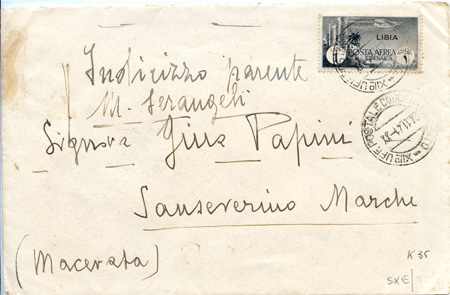 LIBIA
POSTA AEREA
CIRENAICA
Indirizzo parente
M. Serangeli
Signora Gina Papini
Sanseverino Marche
(Macerata)
K 35
SXE/